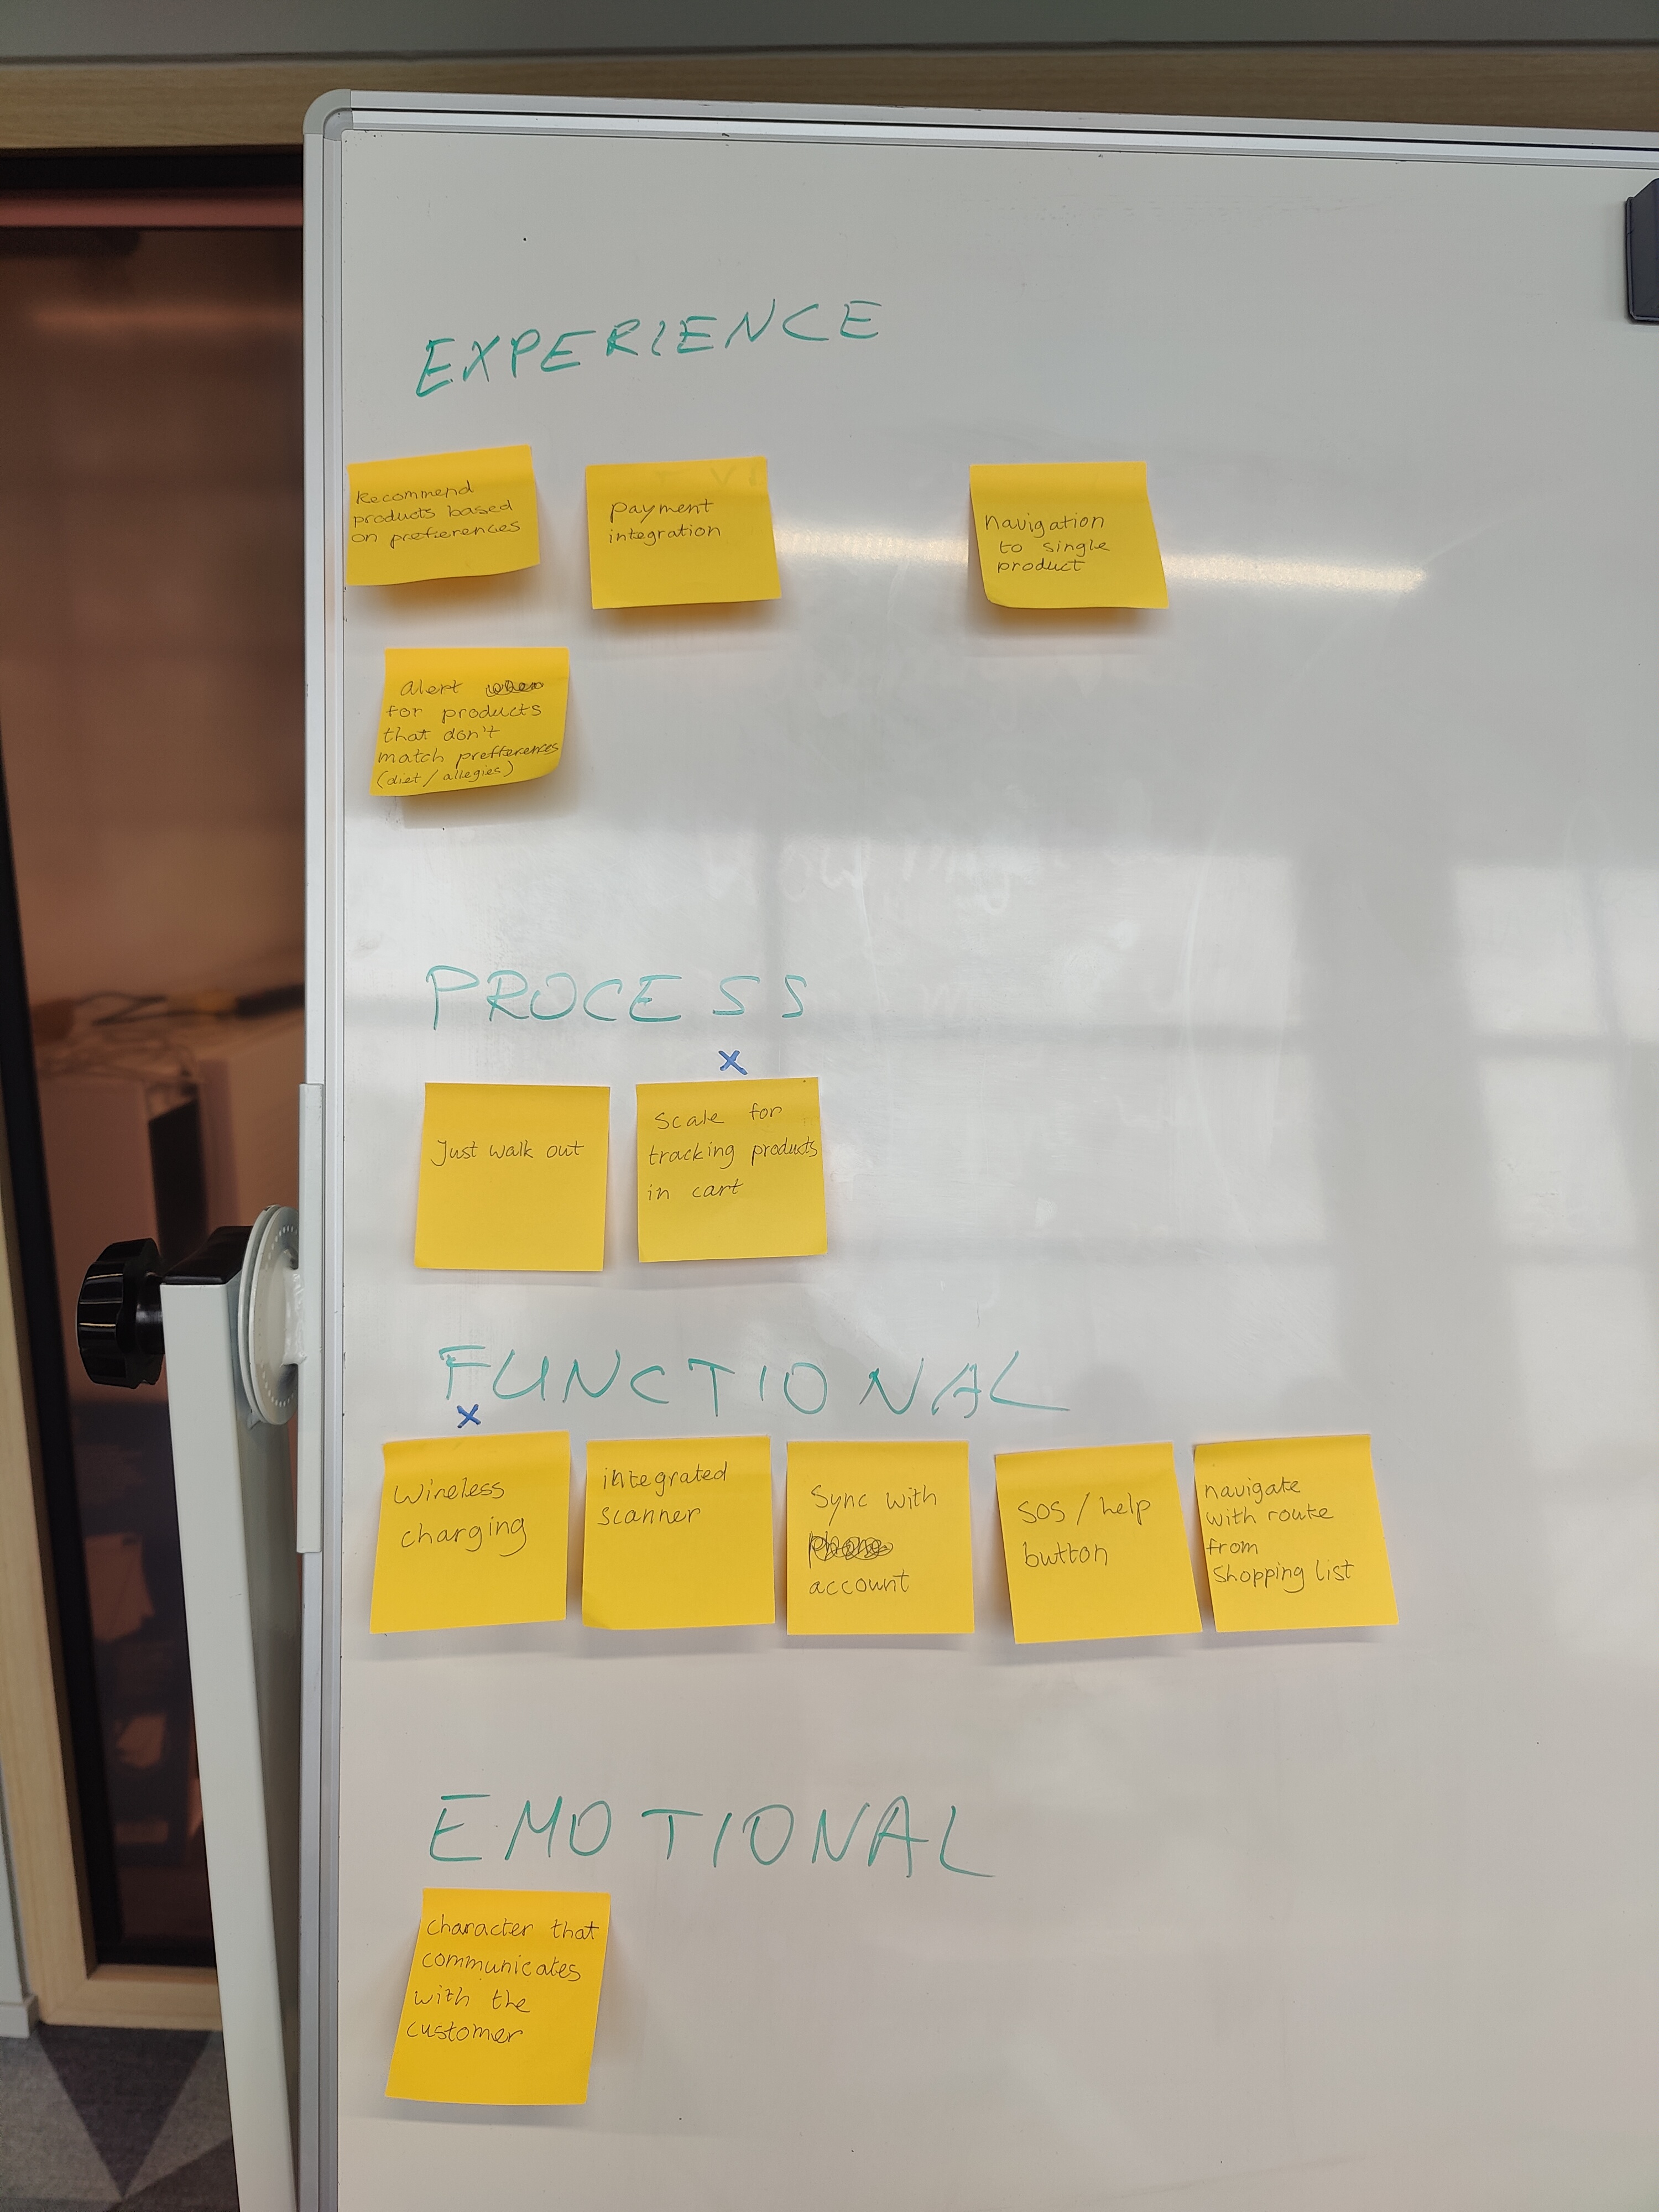 EXPERIENCE
Recommend
products based
on prefferences
payment
integration
navigation
to single
product
alert
for products
that don't
match prefferences
(diet / allegies)
PROCESS
x
Just walk out
Scale for
tracking products
in cart
FUNCTIONAL
x
Wireless
charging
integrated
scanner
Sync with
account
SOS / help
button
navigate
with route
from
Shopping list
EMOTIONAL
character that
communicates
with the
customer